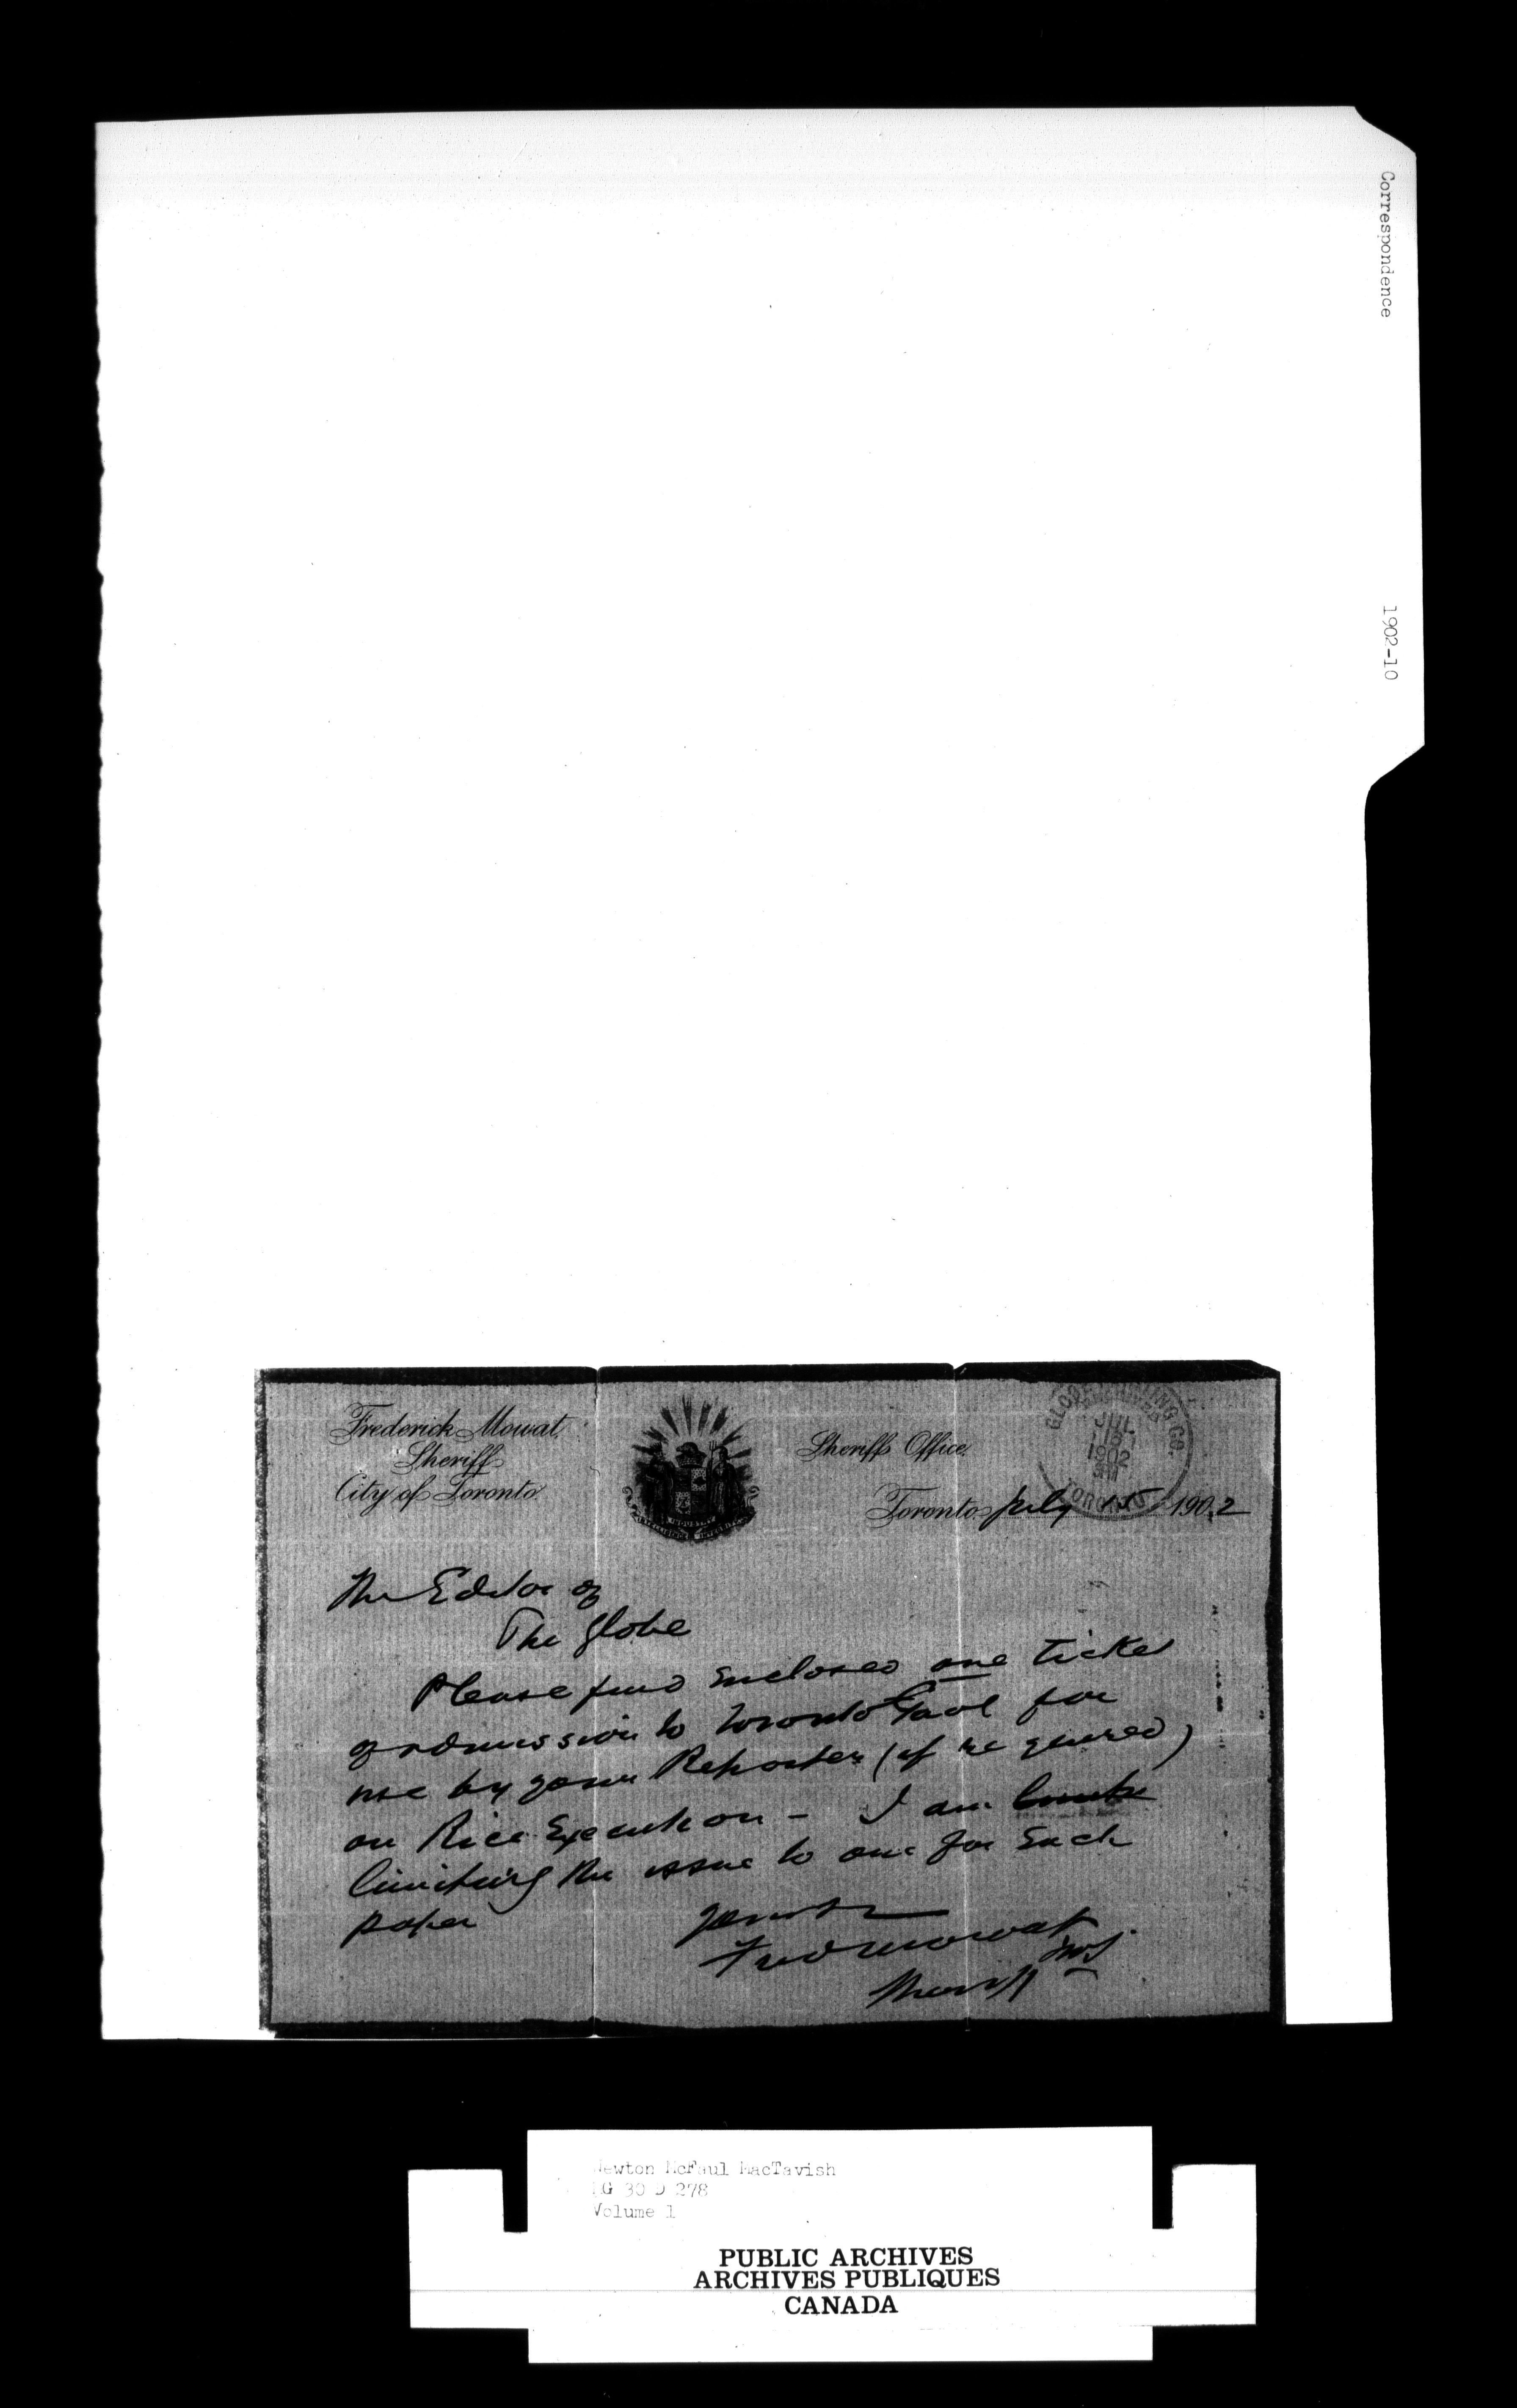 Correspondence
1902-10
Frederick Mowat,
Sheriff
City of Toronto.
Sheriff's Office.
GLOBE PRINTING CO.
JUL
15
1902
TORONTO
Toronto July 15 1902
INDUSTRY
INTELLIGENCE INTEGRITY
The Editor of
The Globe
Please find Enclosed one ticket
of admission to Toronto Gaol for
use by your Reporter (if required)
on Rice Execution - I am
limiting the issue to one for Each
paper
Yours tr
Fred Mowat
Sheriff
Newton McFaul MacTavish
MG 30 D 278
Volume 1
PUBLIC ARCHIVES
ARCHIVES PUBLIQUES
CANADA